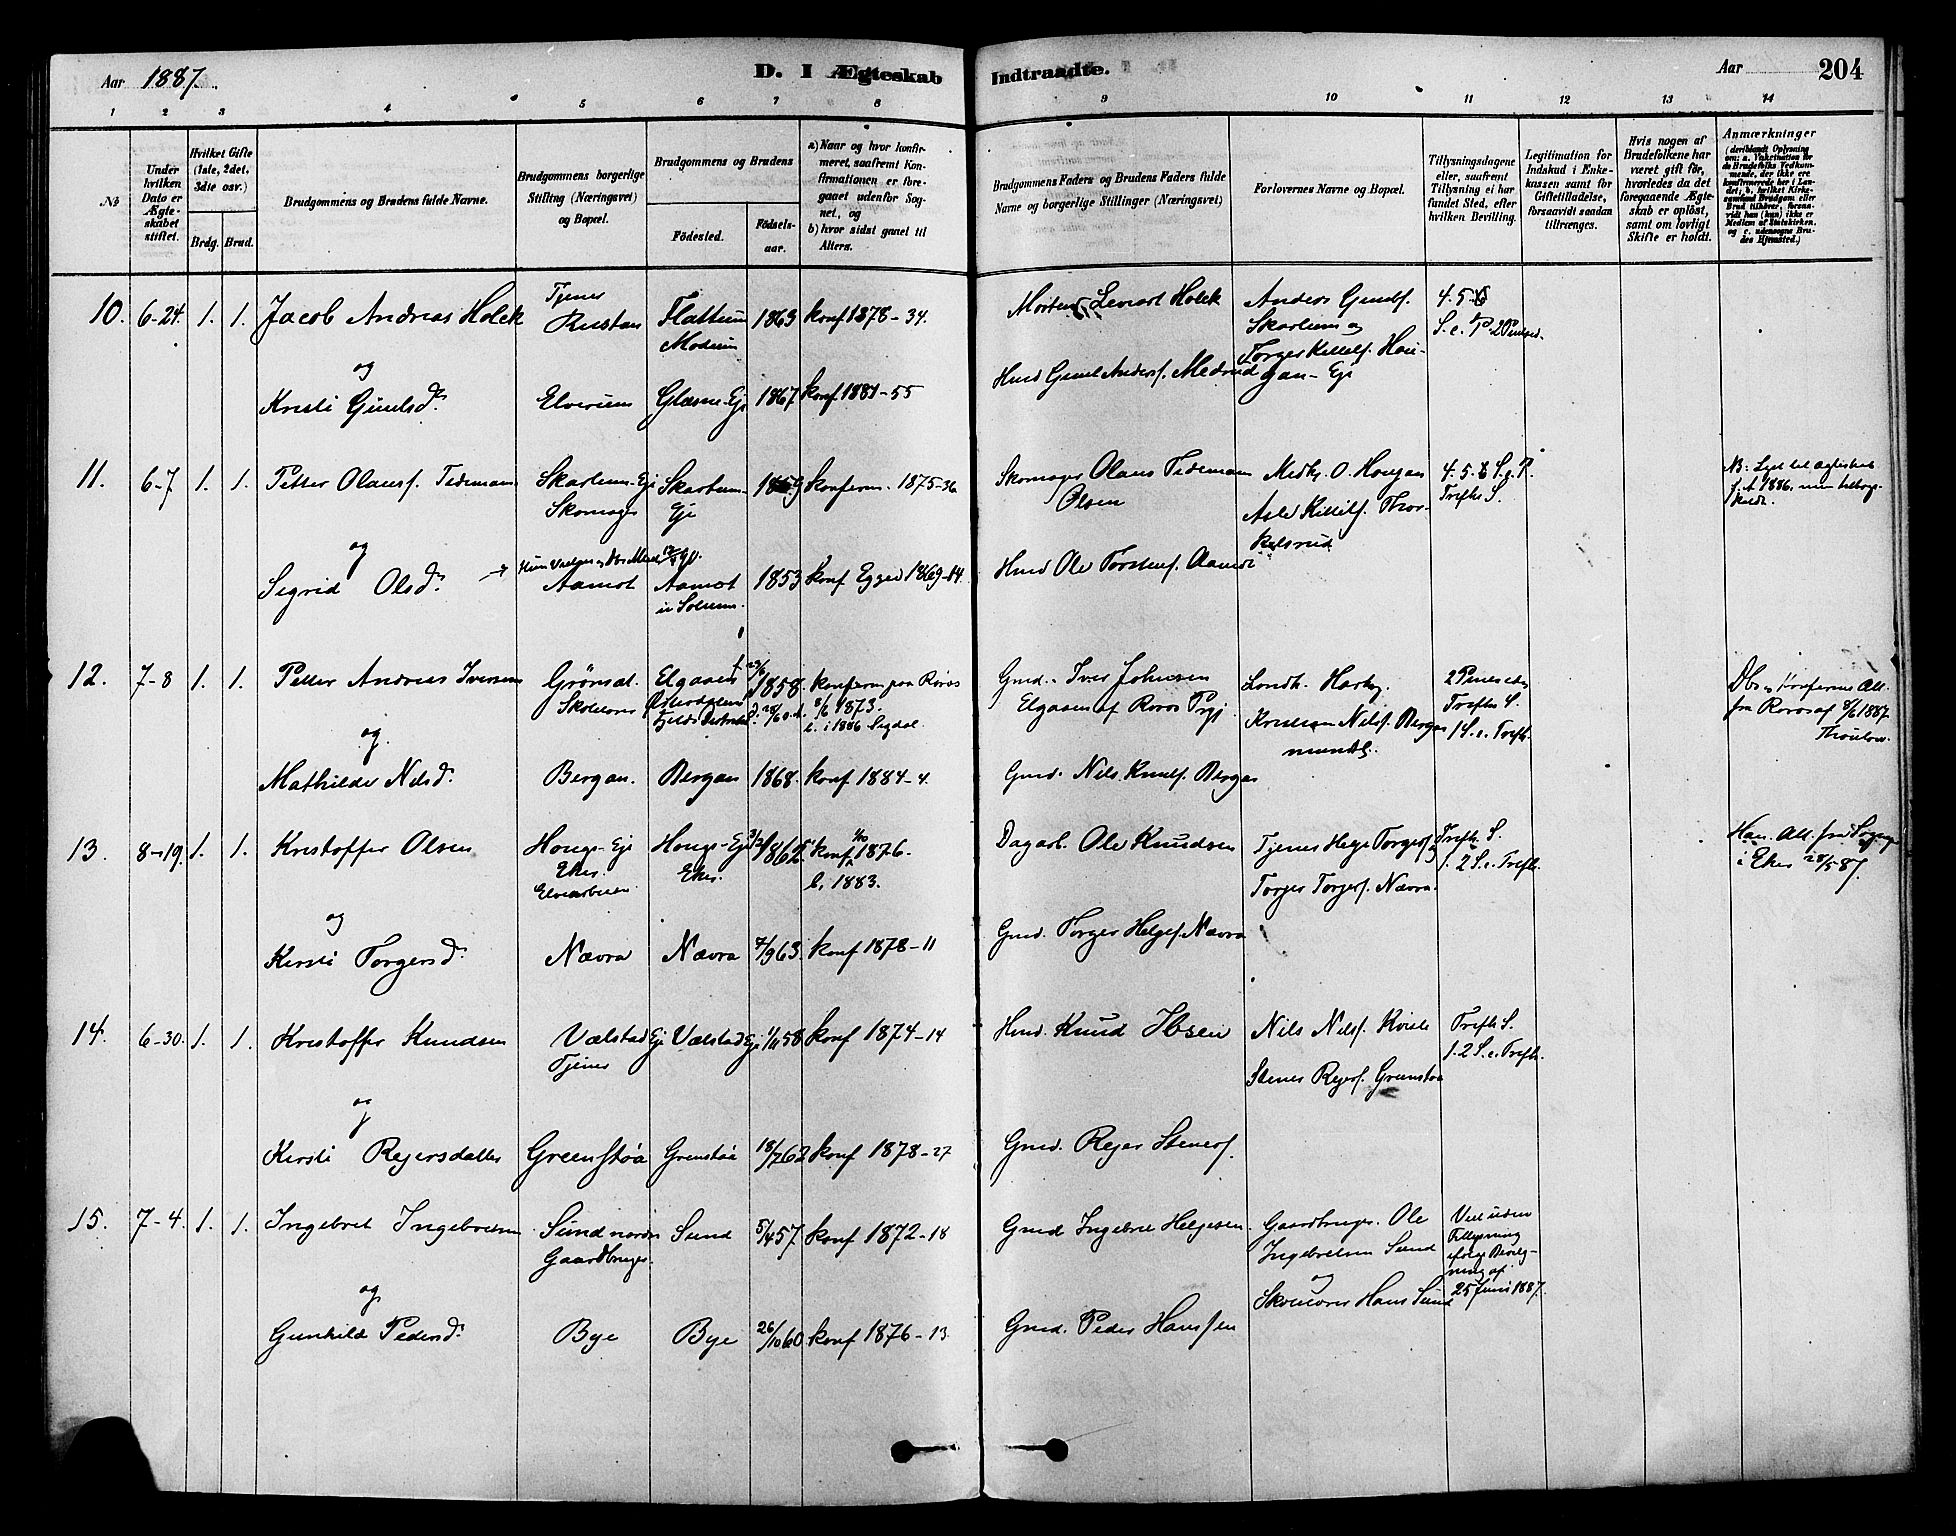 Aar 1887.
D. I Ægteskab Indtraadte.
Aar 204
1 2 3 4 5 6 7 8 9 10 11 12 13 14
No
Under hvilken Dato er Ægteskabet stiftet.
Hvilket Gifte (1ste, 2det, 3die osv.)
Brdg. Brud.
Brudgommens og Brudens fulde Navne.
Brudgommens borgerlige Stilling (Næringsvei) og Bopæl.
Brudgommens og Brudens
Fødested. Fødselsaar.
a) Naar og hvor konfirmeret, saafremt Konfirmationen er foregaaet udenfor Sognet, og
b) hvor sidst gaaet til Alters.
Brudgommens Faders og Brudens Faders fulde Navne og borgerlige Stillinger (Næringsvei)
Forlovernes Navne og Bopæl.
Tillysningsdagene eller, saafremt Tillysning ei har fundet Sted, efter hvilken Bevilling.
Legitimation for Indskud i Enkekassen samt for Giftetilladelse, forsaavidt saadan tiltrænges.
Hvis nogen af Brudefolkene har været gift før, hvorledes da det foregaaende Ægteskab er opløst, samt om lovligt Skifte er holdt.
Anmærkninger
10. 6-24. 1. 1. Jacob Andreas Holck Tjener Rustan Flattum Modum 1863 konf 1878-34. Morten Levart Holck Anders Gunbf. Skartum og
Torger Killilf. Hougan-Eje
4. 5. 6
S. e. P. 2 Pintsed.
og
Kristi Gunilsd. Elverum Glæsne-Eje 1867 konf. 1881-55 Hmd Gunil Andersf. Medrud
11. 6-7 1. 1. Petter Olausf. Tidemann Skartum-Eje Skomager Skartum-Eje 1859 konferm. 1875-36 Skomager Olaus Tidemann Olsen Medhj. O. Hougan
Asle Killilf. Thorkelsrud
4. 5. 6 S. e. P.
Trefts S.
NB: Lyst til Ægteskab f. A 1886. men tilbagekaldt.
og
Sigrid Olsd. Aamot Aamot in Solum. 1853 konf Eggedal 1869-14. Hmd Ole Torstenf. Aamot
12. 7-8 1. 1. Petter Andreas Iversen Grønsal. Skolelærer Elgaaen f. 23/6 1858. konferm paa Røros 8/6 1873.
b. i 1886 Sigdal.
Gmd. Iver Johnsen Elgaaen af Røros Prgj. Landh. Harby.
Kristian Nilsf. Bergan
2 Pintsedag
Trefts S.
1 S. e. Trefts.
Dbs og Konferms Att. fra Røros af 8/6 1887. Thoulow.
og
Mathilde Nilsd. Bergan. Bergan 1868. konf 1884-4. Gmd. Nils Knudf. Bergan
13. 8-19. 1. 1. Kristoffer Olsen Hougs-Eje Eker. Elvearbeider Hougs-Eje Eker. 1862 konf. 1/10 1876.
b. 1883.
Dagarb. Ole Knudsen Tjener Helge Torgersf og
Torger Torgersf. Nævra.
Trefts S.
1. 2 S. e. Trefts.
Han. Att. fra Sognepr i Eker 28/5 87.
og
Kirsti Torgersd. Nævra Nævra 7/9 63. konf 1878-11 Gmd. Torger Helgef. Nævra
14. 6-30. 1. 1. Kristoffer Knudsen Vælstad Eje Tjener Vælstad Eje 1/11 58 konf 1874-14 Hmd. Knud Ibsen Nils Nilsf. Kvisle
Stener Rejersf. Grenstøa
Trefts S.
1. 2 S. e. Trefts.
og
Kirsti Rejersdatter Greenstøa Grenstøa 18/7 62 konf 1878-27 Gmd. Rejer Stenersf.
15. 7-4. 1. 1. Ingebret Ingebretsen Sund nordre Gaardbruger. Sund 5/4 57. konf 1872-18 Gmd Ingebret Helgesen Gaardbruger. Ole Ingebretsen Sund
og
Skomager Hans Sund
Viet uden Tillysning efter Bevilgning af 25 Juni 1887.
og
Gunhild Pedersd. Bye Bye 26/10 60 konf 1876-13 Gmd. Peder Hansen